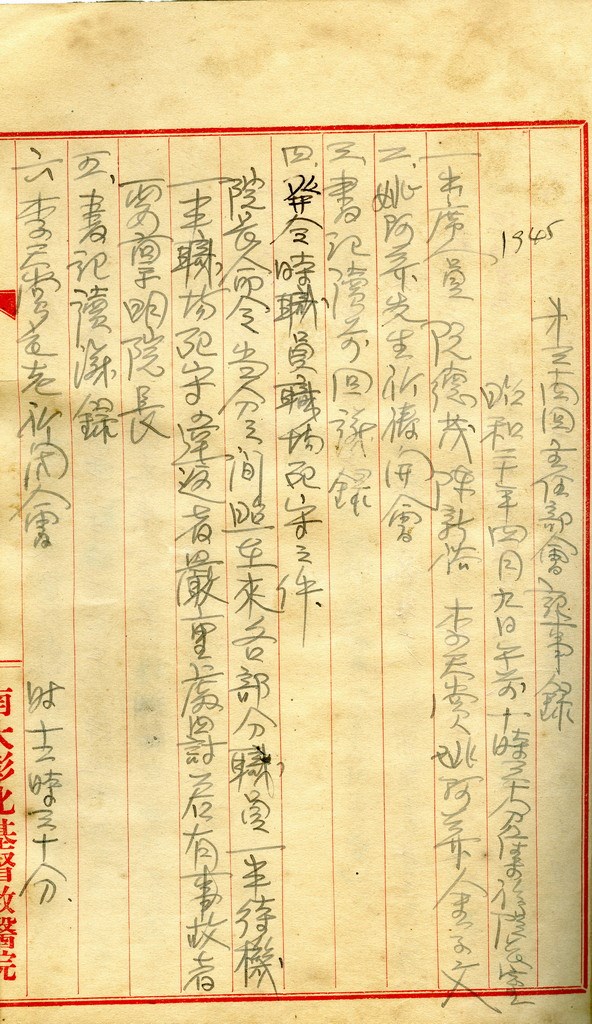 1945
第三十四回主任部會記事錄
昭和二十年四月九日午前十時三十分於本院院長室
一出席員 阮德茂 陳新 李天賞 姚阿弄 余文
二、姚阿弄先生祈禱開會
三、書記讀前回議錄
四、發令時職員職場死守之件、
院長命令當分之間照在來各部分職員一半待機
一半職場死守若違返者嚴重處罰若有事故者
要聲明院長
五、書記讀議錄
六 李天賞長老祈閉會 時十二時三十分、
南大彰化基督教醫院